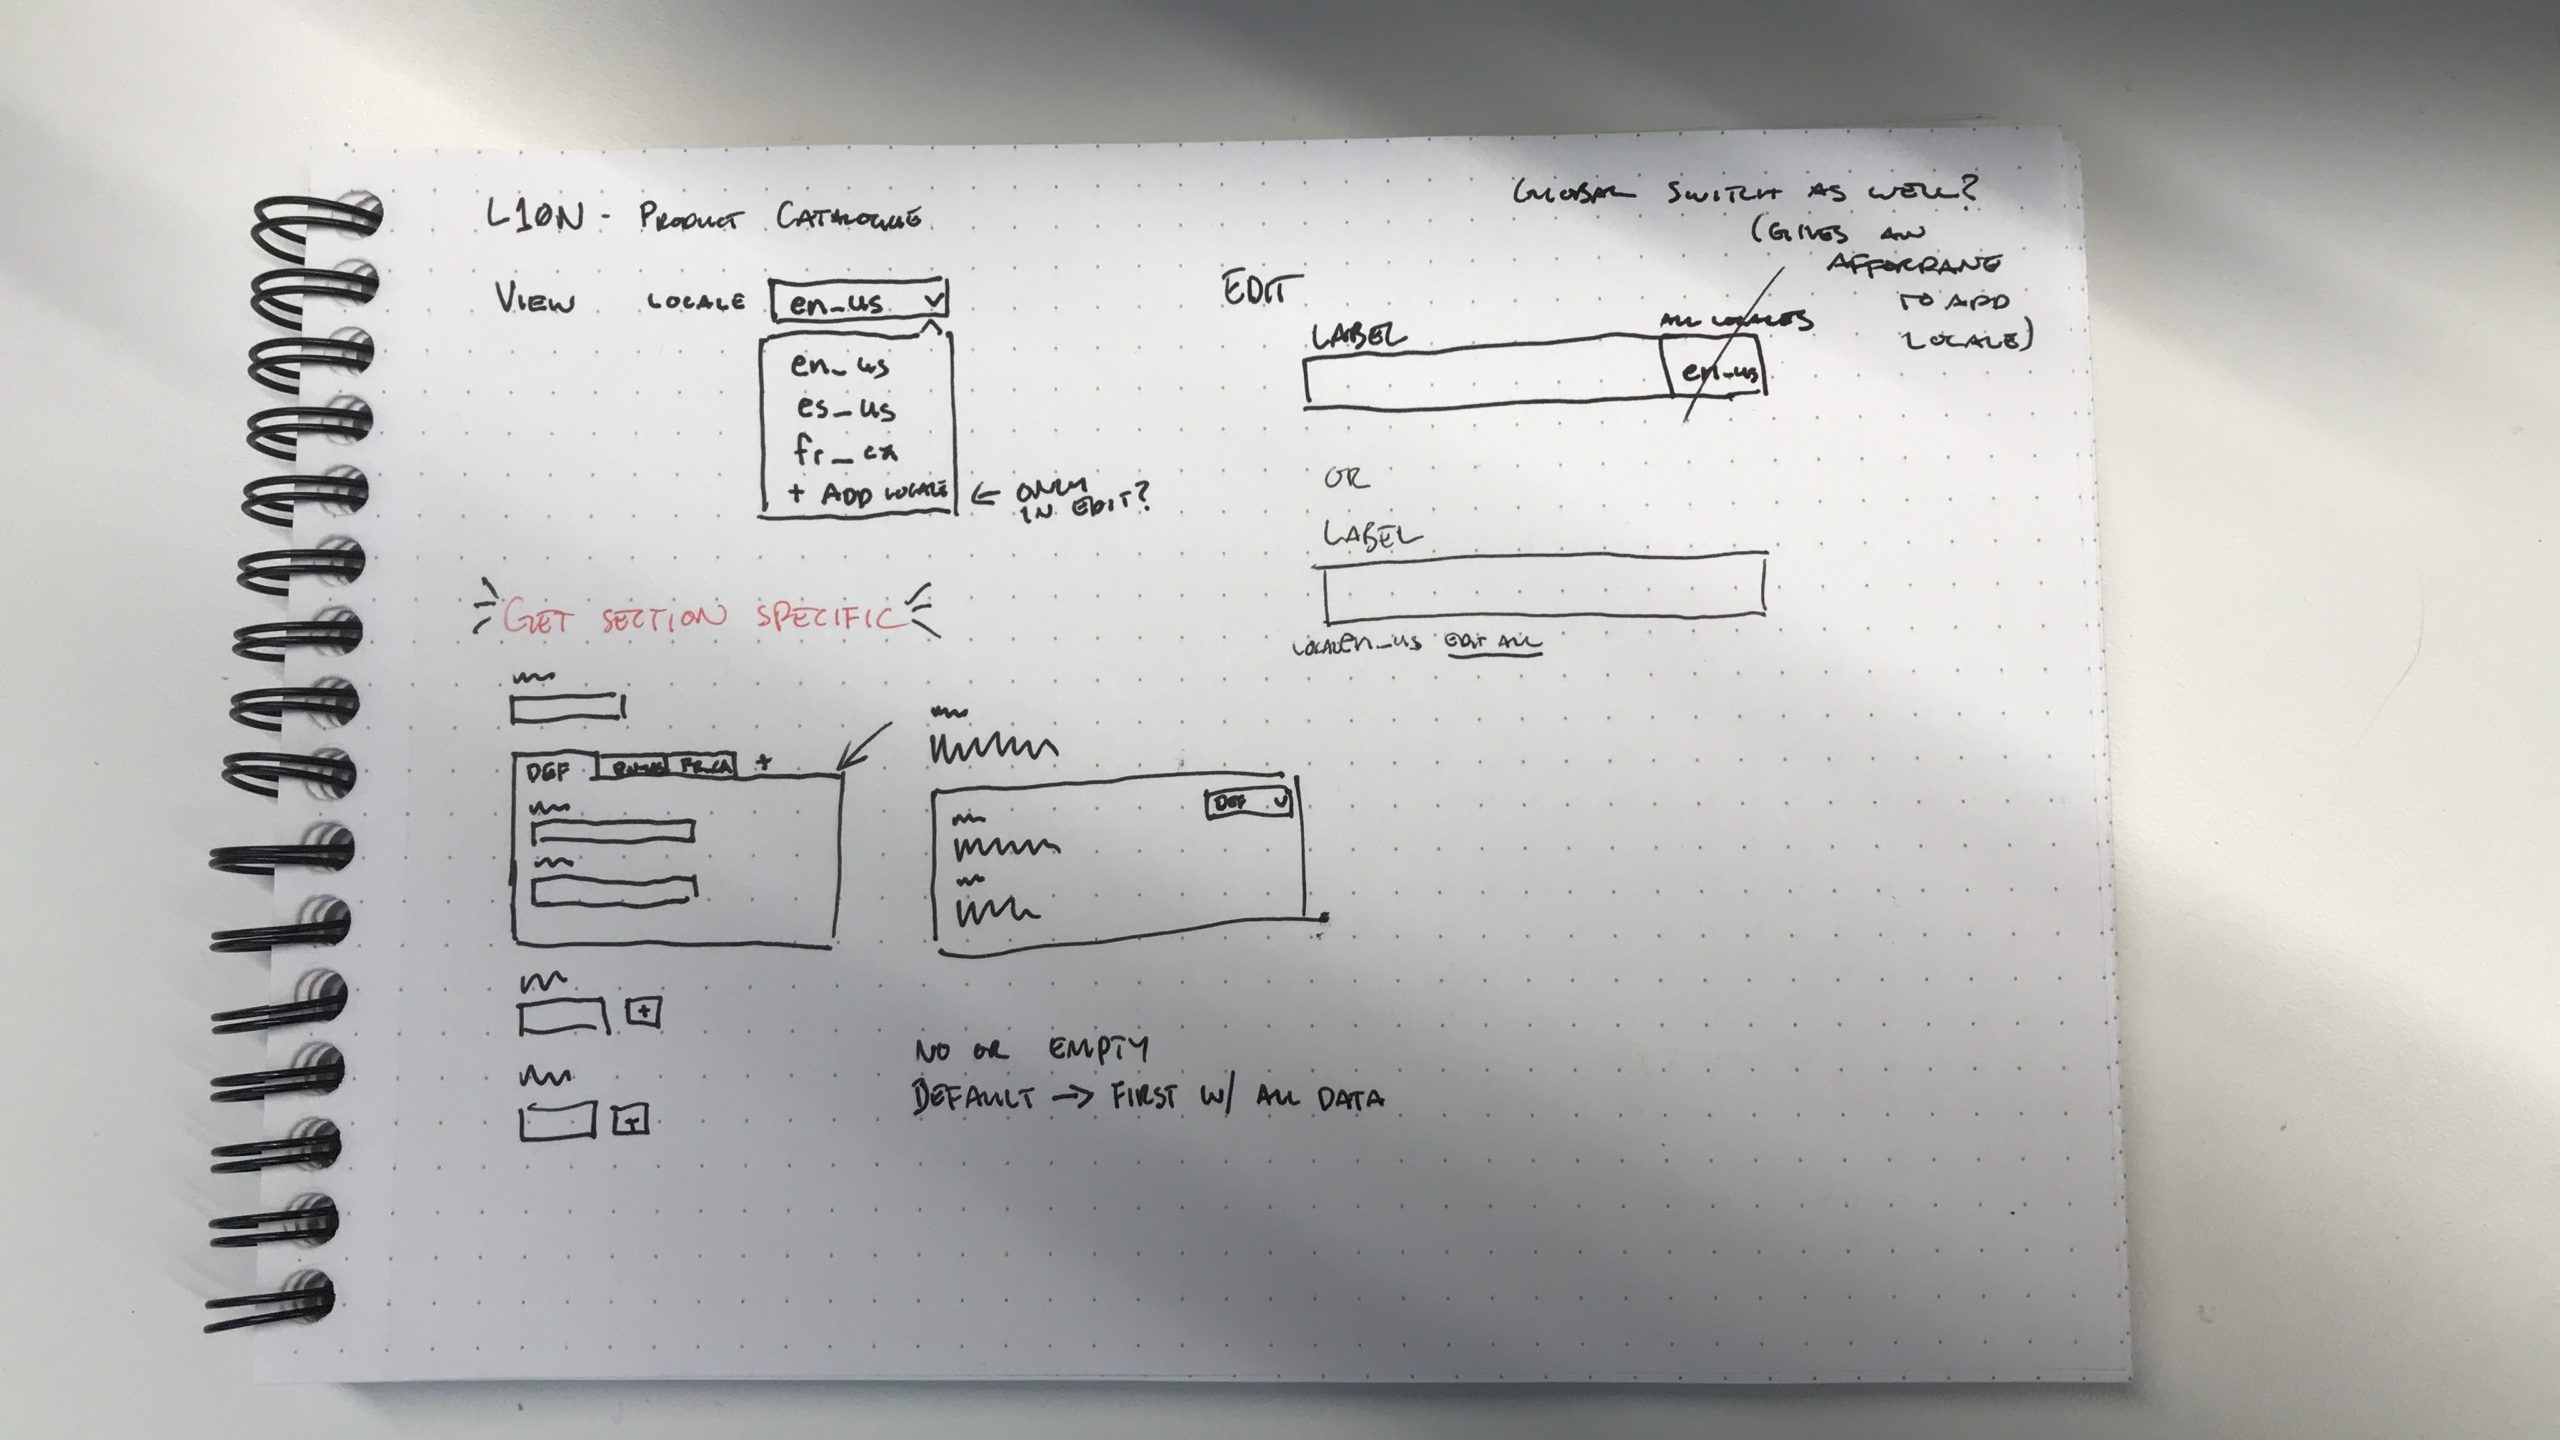 L10N - PRODUCT CATALOGUE
VIEW LOCALE en_us
en_us
es_us
fr_ca
+ ADD LOCALE ← ONLY
IN EDIT?
GLOBAL SWITCH AS WELL?
(GIVES AN
AFFORDANE
TO ADD
LOCALE)
EDIT
LABEL ALL LOCALES
en_us
OR
LABEL
LOCALE en_us EDIT ALL
GET SECTION SPECIFIC
DEF FR_CA +
DEF
+
+
NO OR EMPTY
DEFAULT → FIRST W/ ALL DATA